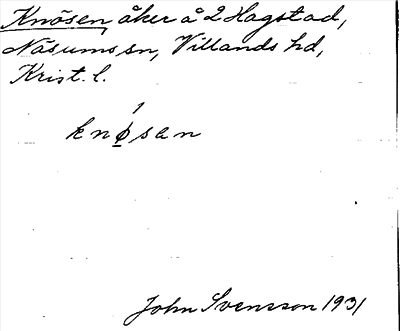 Knösen, åker å 2 Hagstad,
Näsums sn, Villands hd,
Krist. l.
1
knø̲san
John Svensson 1931